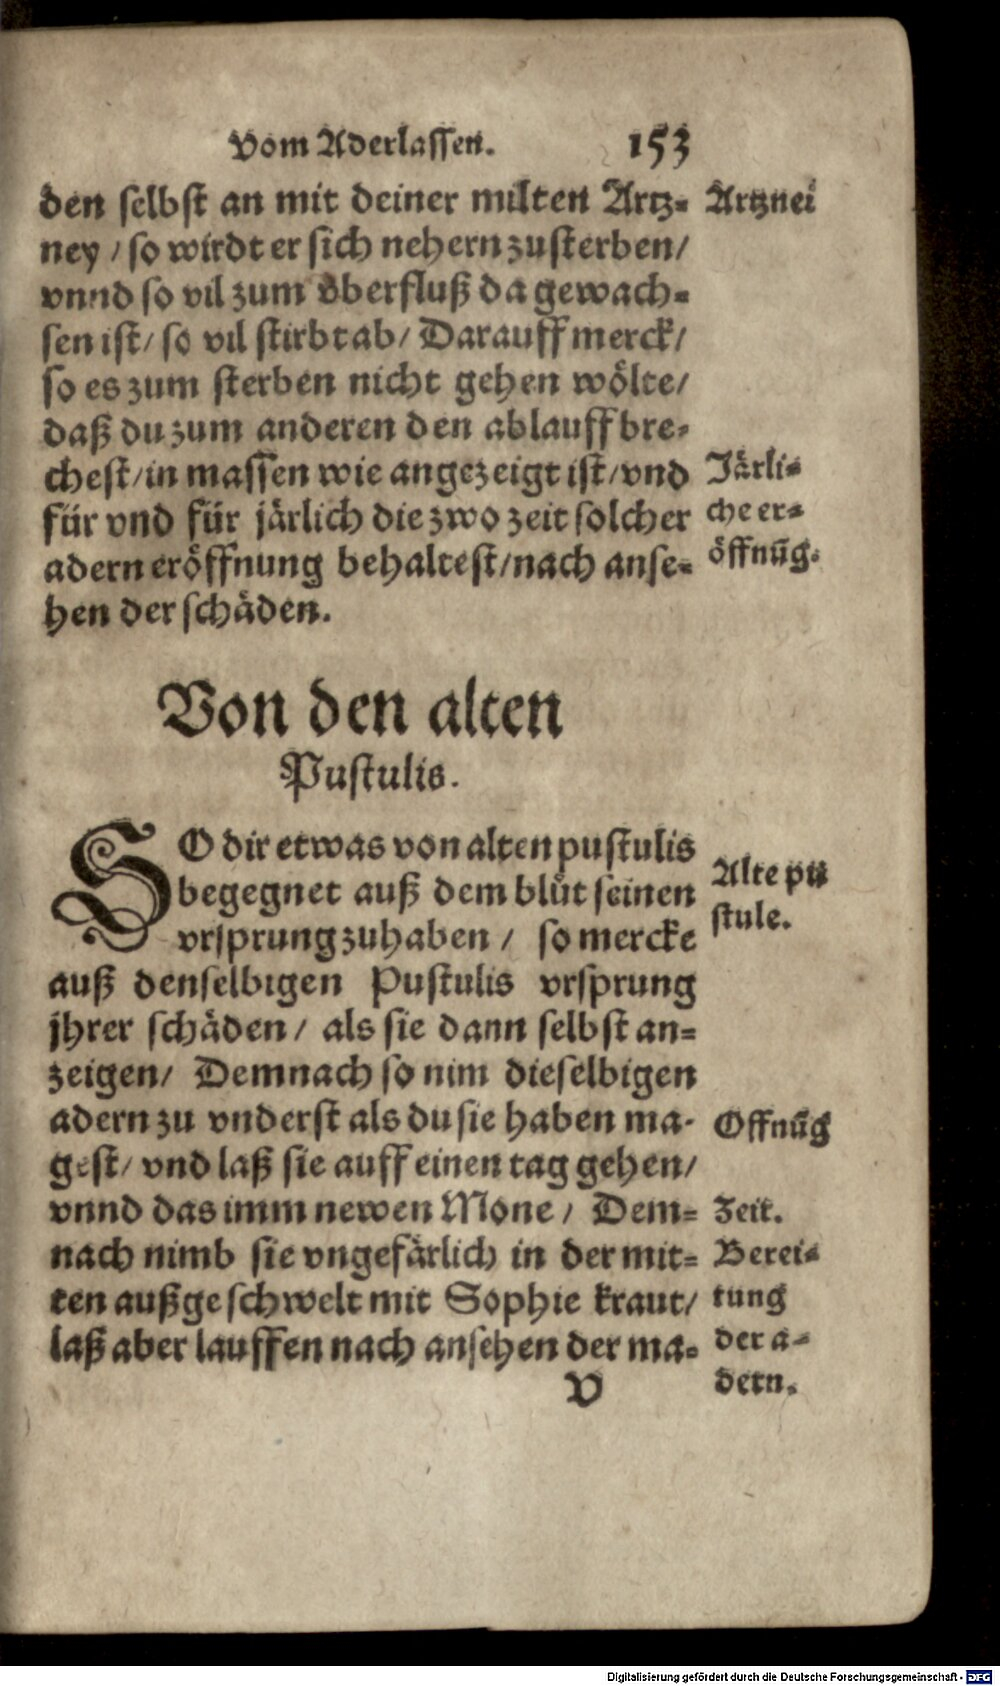 Vom Aderlassen. 153
den selbst an mit deiner milten Artz-
ney / so wirdt er sich nehern zusterben/
vnnd so vil zum vberfluß da gewach-
sen ist/ so vil stirbt ab/ Darauff merck/
so es zum sterben nicht gehen wölte/
daß du zum anderen den ablauff bre-
chest/in massen wie angezeigt ist/vnd
für vnd für järlich die zwo zeit solcher
adern eröffnung behaltest/nach anse-
hen der schäden.
Artznei
Järli-
che er-
öffnūg.
Von den alten
Pustulis.
SO dir etwas von alten pustulis
begegnet auß dem blůt seinen
vrsprung zuhaben / so mercke
auß denselbigen Pustulis vrsprung
jhrer schäden/ als sie dann selbst an-
zeigen/ Demnach so nim dieselbigen
adern zu vnderst als du sie haben ma-
gest/ vnd laß sie auff einen tag gehen/
vnnd das imm newen Mone / Dem-
nach nimb sie vngefärlich in der mit-
ten außgeschwelt mit Sophie kraut/
laß aber lauffen nach ansehen der ma-
Alte pu
stule.
Offnūg
Zeit.
Berei-
tung
der a-
dern.
V
Digitalisierung gefördert durch die Deutsche Forschungsgemeinschaft - DFG